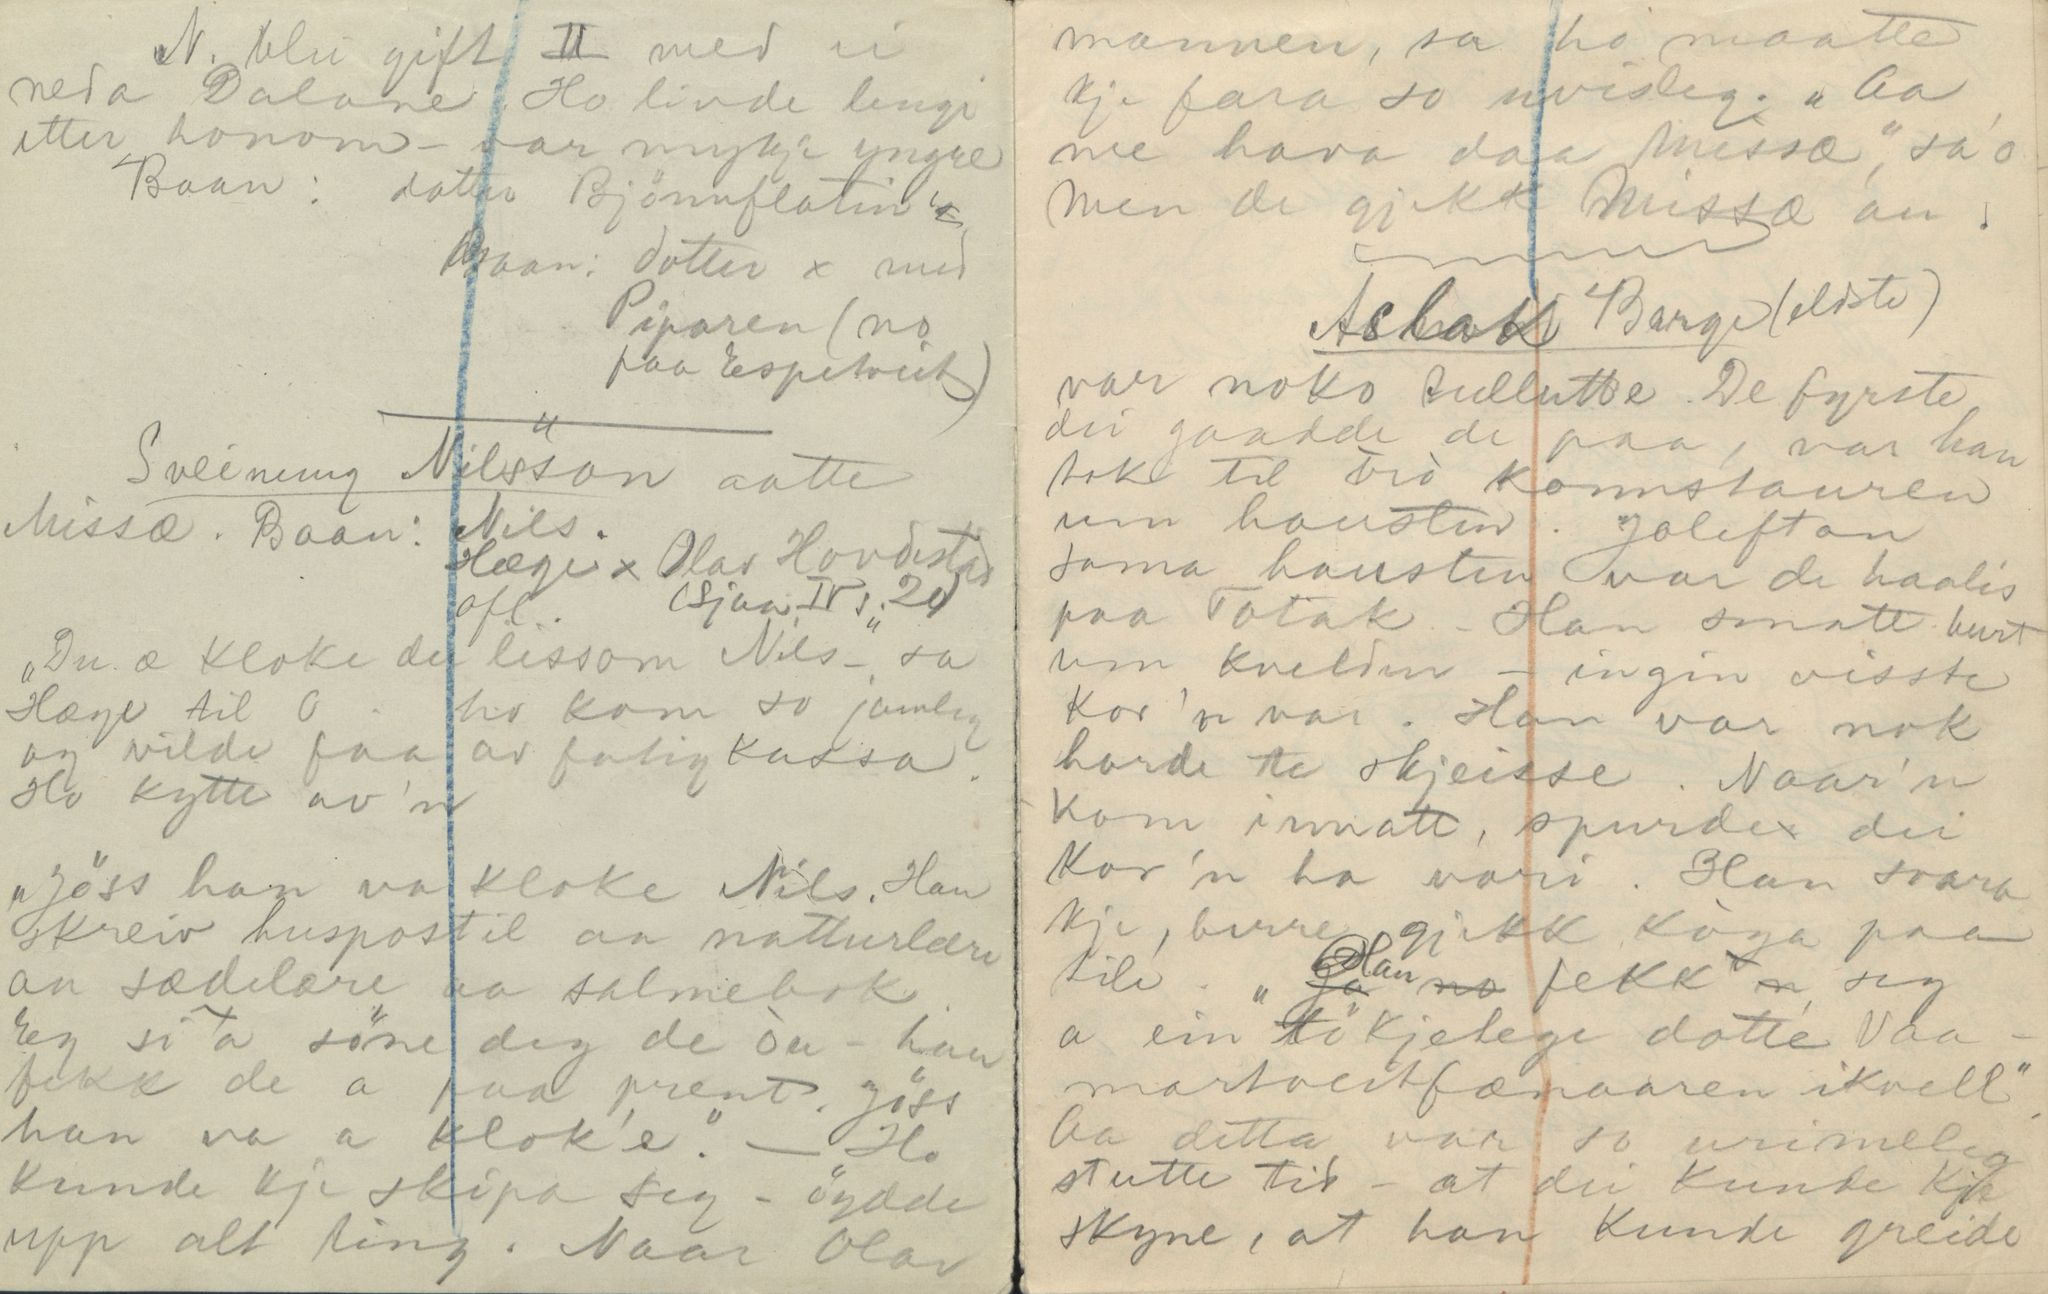 N. blei gift II med ei
neda Dalane. Ho livde lengi
etter honom - var mykje yngre
Baan: dotter Bjönnflatin x
Baan: dotter x med
Piparen (no
paa Espetveit)
Sveinung Nilsson aatte
Missæ. Baan: Nils.
Hæge x Olav Hovdestad
ofl. (Sjaa IV s. 20)
"Du æ kloke du lissom Nils-", sa
Hæge til O. ho kom so jamleg
og vilde faa av fatigkassa.
Ho kytte av'n
"Jöss han va kloke Nils. Han
skreiv huspostil aa natturlære
aa sædelære aa salmebok.
Eg si'a söne deg de òu - han
fekk de a paa prent. Jöss
han va a klok'e." — Ho
kunde kje skipa seg - öydde
upp alt ting. Naar Olav
mannen, sa ho maatte
kje fara so uvisleg. "Aa
me hava daa Missæ", sa'o
Men de gjekk Missæ au.
Aslak Barge (eldste)
var noko tullutte. De fyrste
dei gaadde de paa, var han
tok til brò konnstauren
um hausten. Joleftan
sama hausten var de haalis
paa Totak - Han smatt burt
um kvelden - ingin visste
kor'n var. Han var nok
harde te skjeisse. Naar'n
kom innatt, spurde dei
kor'n ha vori. Han svara
kje, berre gjekk kòga paa
tile. "Ja no Han fekk n seg
a ein tökjelege dotte Vaa-
martveitfænaaren ikvell".
Aa detta var so urimeleg
stutte tid - at dei kunde kje
skyne, at han kunde greide